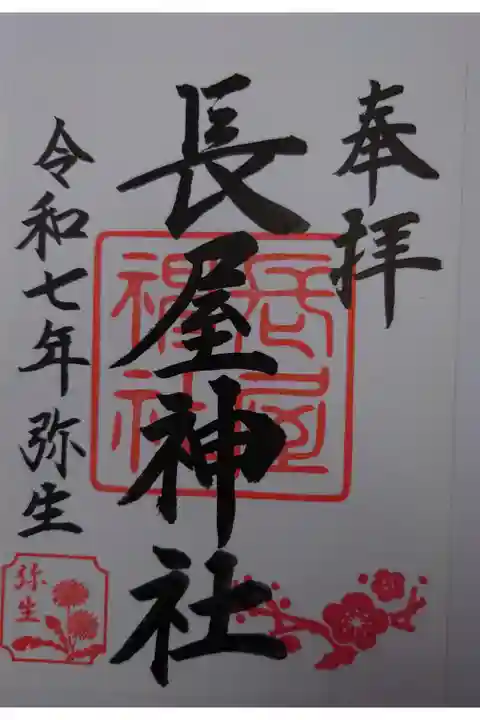 奉拝
長屋神社
長屋神社
令和七年弥生
弥生